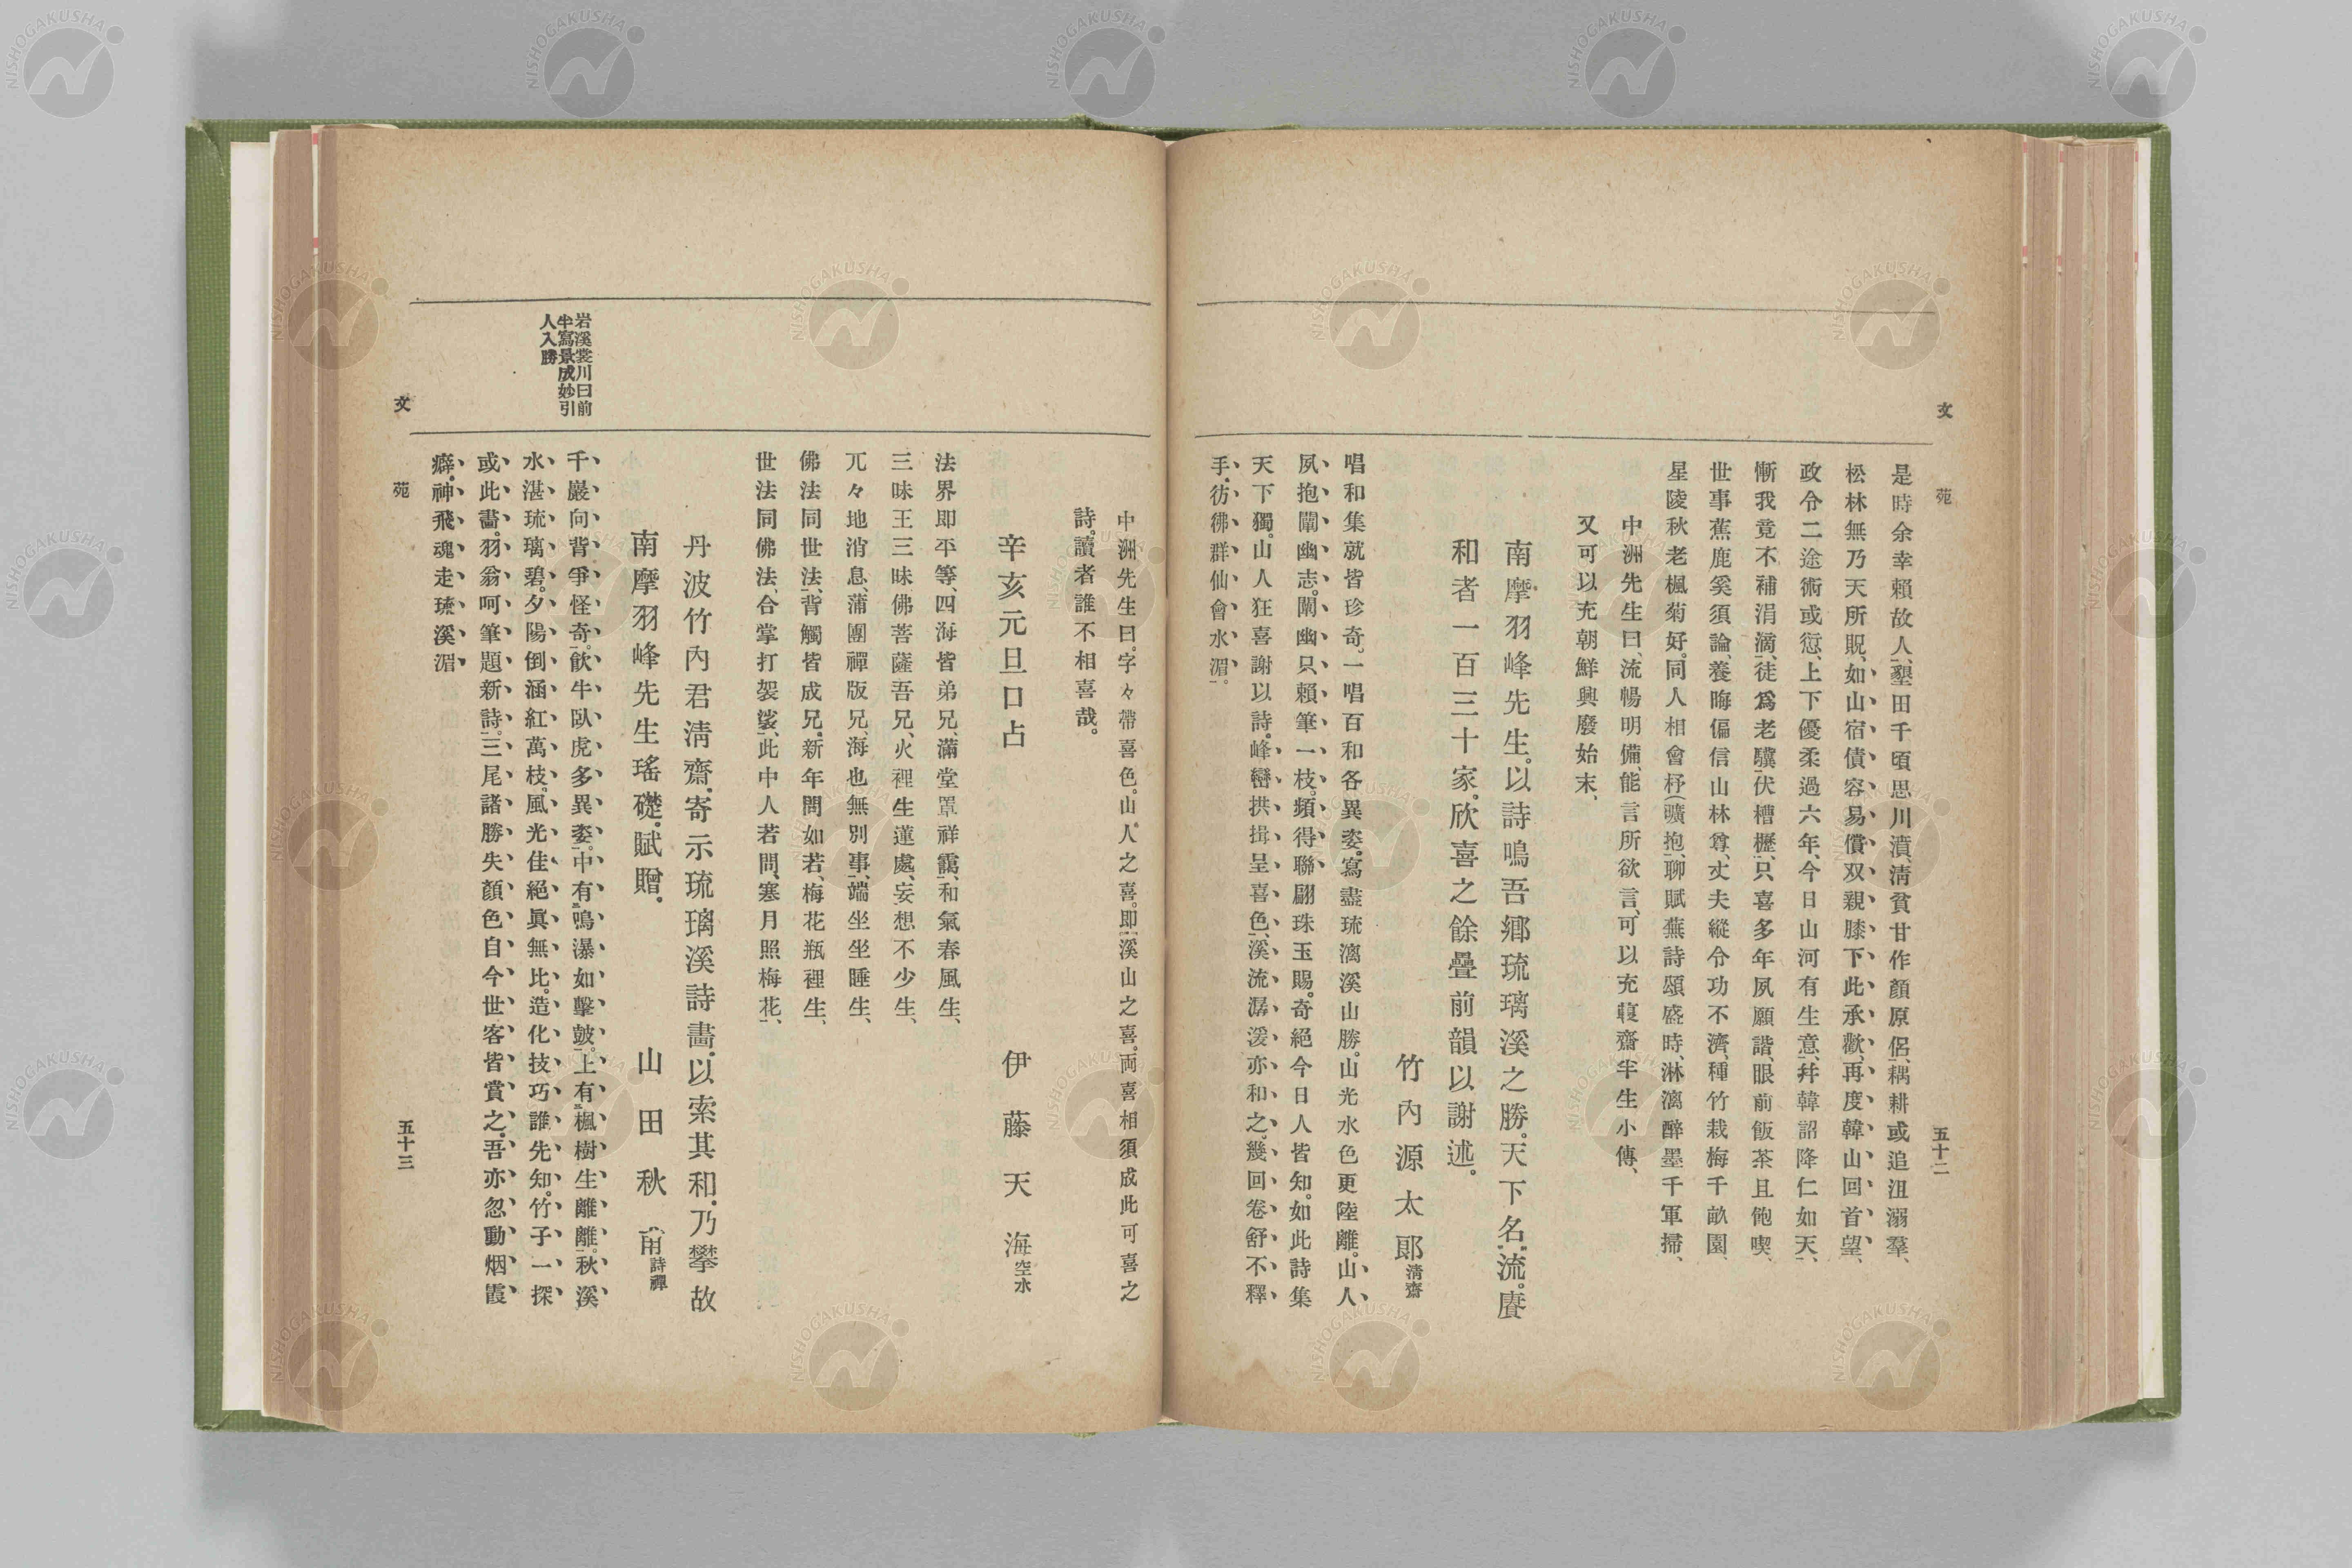 文苑
五十二
是時余幸賴故人、墾田千頃思川濆、淸貧甘作顏原侶、耦耕或追沮溺羣、
松林無乃天所貺、如山宿債容易償、双親膝下此承歡、再度韓山回首望、
政令二途術或愆、上下優柔過六年、今日山河有生意、幷韓詔降仁如天、
慚我竟不補涓滴、徒爲老驥伏槽櫪、只喜多年夙願諧、眼前飯茶且飽喫、
世事蕉鹿奚須論、養晦偏信山林尊、丈夫縱令功不濟、種竹栽梅千畝園、
星陵秋老楓菊好。同人相會杼(曠抱、聊賦蕪詩頌盛時、淋漓醉墨千軍掃、
中洲先生曰、流暢明備、能言所欲言、可以充蕿齋半生小傳、
又可以充朝鮮興廢始末、
南摩羽峰先生。以詩鳴吾鄉琉璃溪之勝。天下名流。賡
和者一百三十家。欣喜之餘疊前韻以謝述。
竹內源太郞淸齋
唱和集就皆珍奇。一唱百和各異姿。寫盡琉漓溪山勝。山光水色更陸離。山人
夙抱闡幽志。闡幽只賴筆一枝。頻得聯翩珠玉賜。奇絕今日人皆知。如此詩集
天下獨。山人狂喜謝以詩。峰巒拱揖呈喜色、溪流潺湲亦和之、幾回卷舒不釋
手。彷彿群仙會水湄。
中洲先生曰。字々帶喜色。山人之喜。卽溪山之喜。兩喜相須成此可喜之
詩。讀者誰不相喜哉。
辛亥元旦口占
伊藤天海空水
法界卽平等、四海皆弟兄、滿堂罩祥靄、和氣春風生、
三昧王三昧、佛菩薩吾兄、火裡生蓮處、妄想不少生、
兀々地消息、蒲團禪版兄、海也無別事、端坐坐睡生、
佛法同世法、背觸皆成兄。新年問如若、梅花瓶裡生、
世法同佛法、合掌打袈裟、此中人若問、塞月照梅花、
丹波竹內君淸齋。寄示琉璃溪詩畵。以索其和。乃攀故
南摩羽峰先生瑤礎。賦贈。
山田秋甫詩禪
岩溪裳川曰前
半寫景成妙引
人入勝
千巖向背爭怪奇。飮牛臥虎多異姿。中有鳴瀑如擊皷。上有楓樹生離離。秋溪
水湛琉璃碧。夕陽倒涵紅萬枝。風光佳絕眞無比。造化技巧誰先知。竹子一探
或此畵。羽翁呵筆題新詩。三尾諸勝失顏色自今世客皆賞之。吾亦忽動烟霞
癖。神飛魂走琉溪湄
文苑
五十三